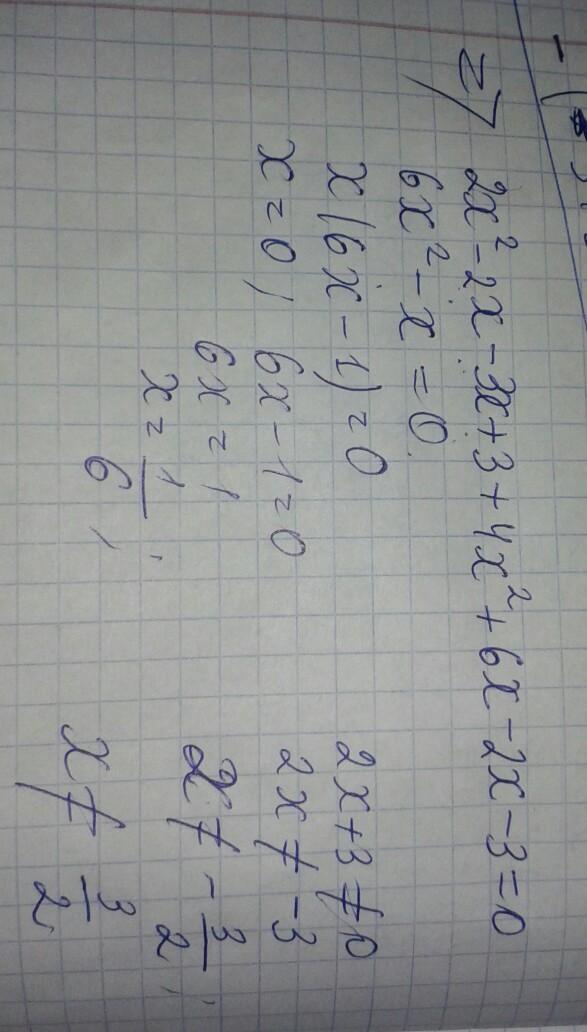 => 2x² - 2x - 3x + 3 + 4x² + 6x - 2x - 3 = 0
6x² - x = 0
x(6x - 1) = 0
x = 0, 6x - 1 = 0
6x = 1
x = 1/6,
2x + 3 ≠ 0
2x ≠ -3
x ≠ -3/2,
x ≠ 3/2,